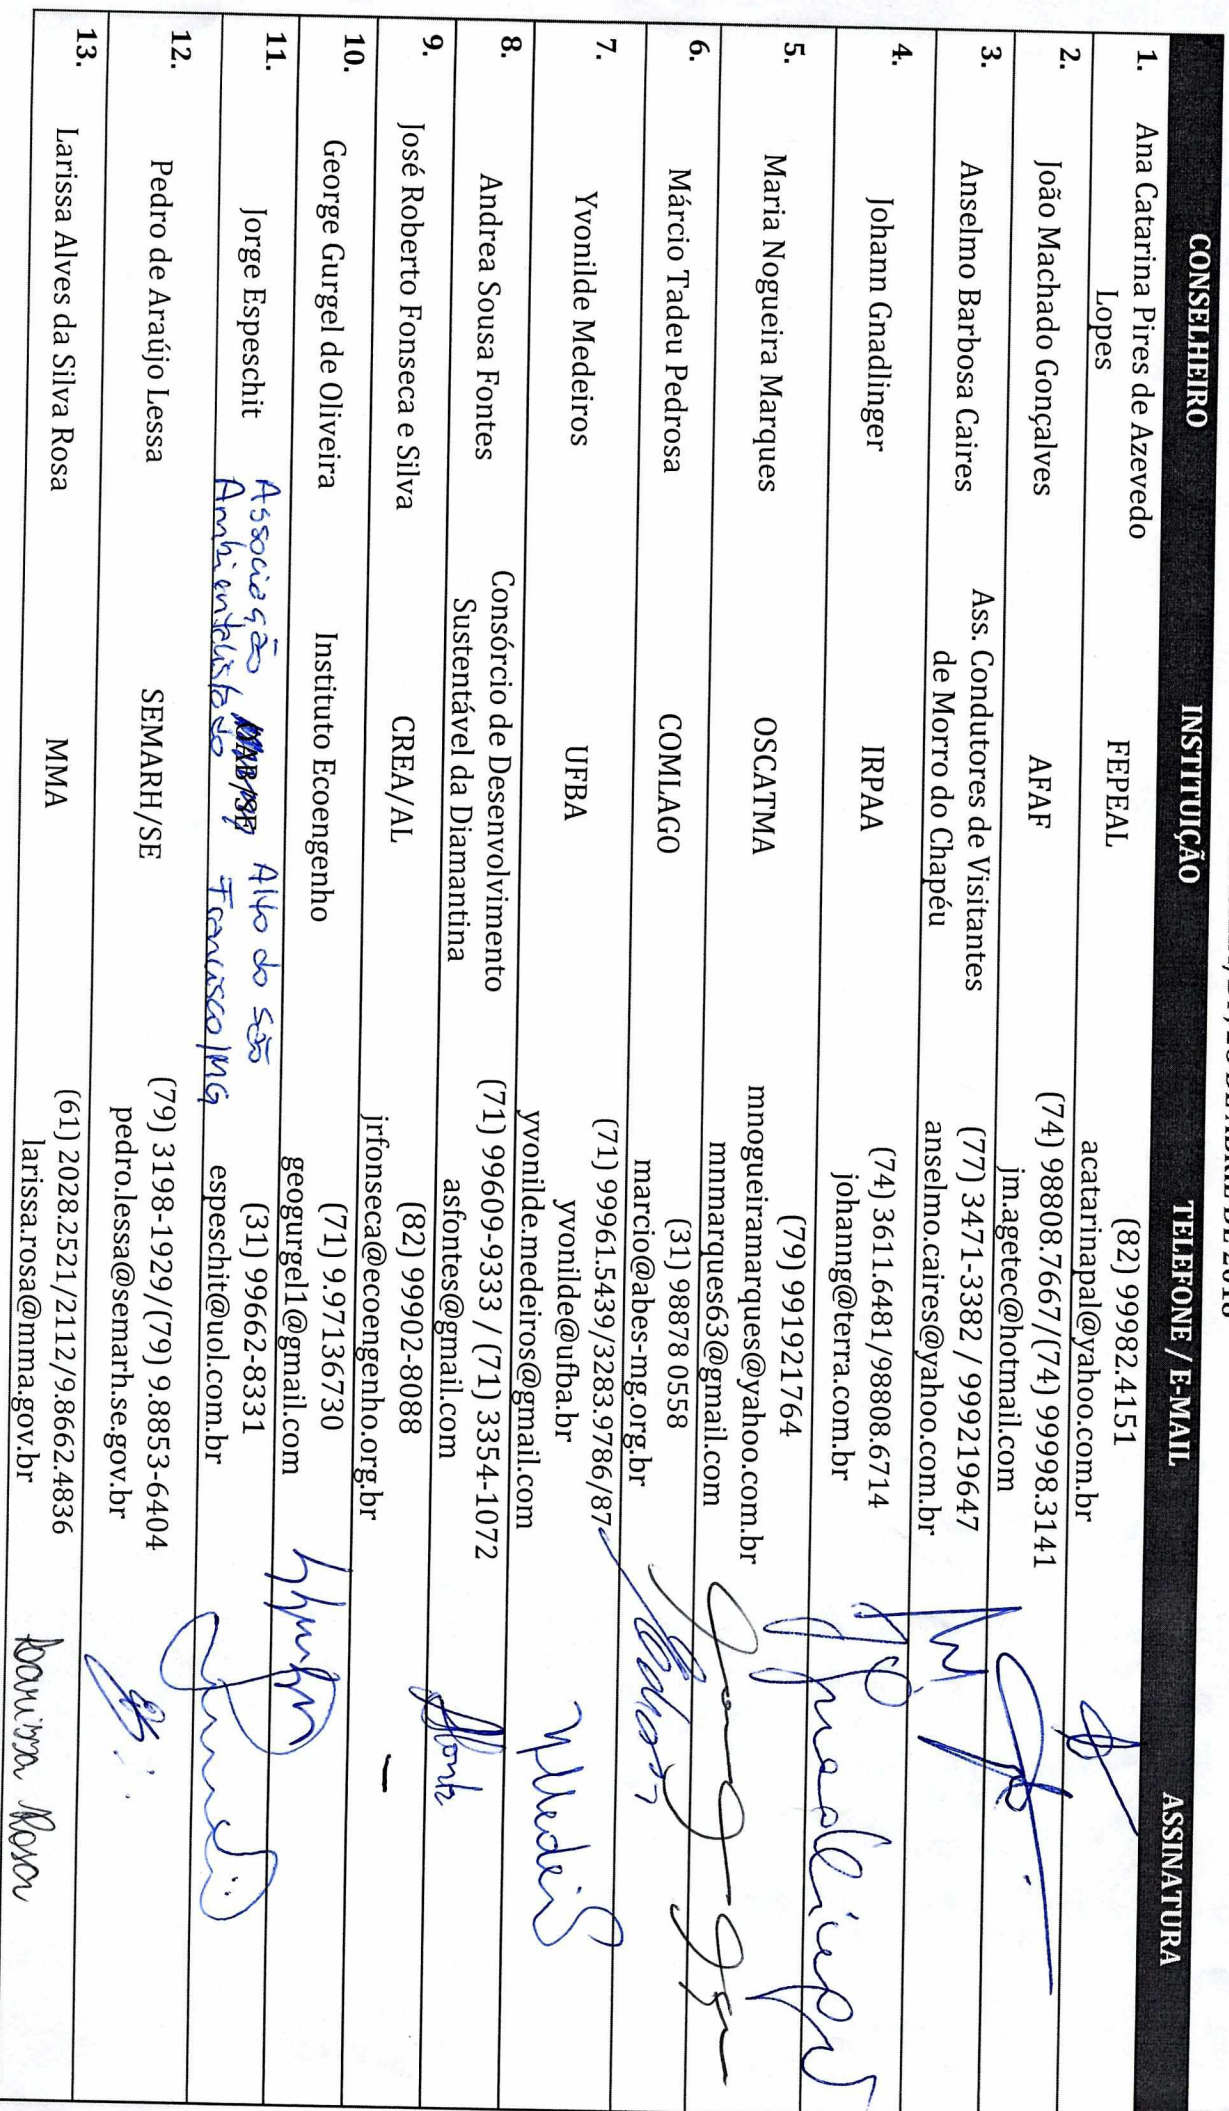 CONSELHEIRO INSTITUIÇÃO TELEFONE / E-MAIL ASSINATURA
1. Ana Catarina Pires de Azevedo Lopes FEPEAL (82) 99982.4151
acatarinapal@yahoo.com.br
2. João Machado Gonçalves AFAF (74) 98808.7667/(74) 99998.3141
jm.agetec@hotmail.com
3. Anselmo Barbosa Caires Ass. Condutores de Visitantes (77) 3471-3382 / 999219647
de Morro do Chapéu anselmo.caires@yahoo.com.br
4. Johann Gnadlinger IRPAA (74) 3611.6481/98808.6714
johanng@terra.com.br
5. Maria Nogueira Marques OSCATMA (79) 991921764
mnogueiramarques@yahoo.com.br
mnmarques63@gmail.com
6. Márcio Tadeu Pedrosa COMLAGO (31) 98878 0558
marcio@abes-mg.org.br
7. Yvonilde Medeiros UFBA (71) 99961.5439/3283.9786/87
yvonilde@ufba.br
yvonilde.medeiros@gmail.com
8. Andrea Sousa Fontes Consórcio de Desenvolvimento (71) 99609-9333 / (71) 3354-1072
Sustentável da Diamantina asfontes@gmail.com
9. José Roberto Fonseca e Silva CREA/AL (82) 99902-8088
jrfonseca@ecoengenho.org.br
10. George Gurgel de Oliveira Instituto Ecoengenho (71) 9.97136730
geogurgel1@gmail.com
11. Jorge Espeschit Associação Alto do São (31) 99662-8331
Ambientalista do Francisco/MG espeschit@uol.com.br
12. Pedro de Araújo Lesssa SEMARH/SE (79) 3198-1929/(79) 9.8853-6404
pedro.lessa@semarh.se.gov.br
13. Larissa Alves da Silva Rosa MMA (61) 2028.2521/2112/9.8662.4836 Larissa Rosa
larissa.rosa@mma.gov.br